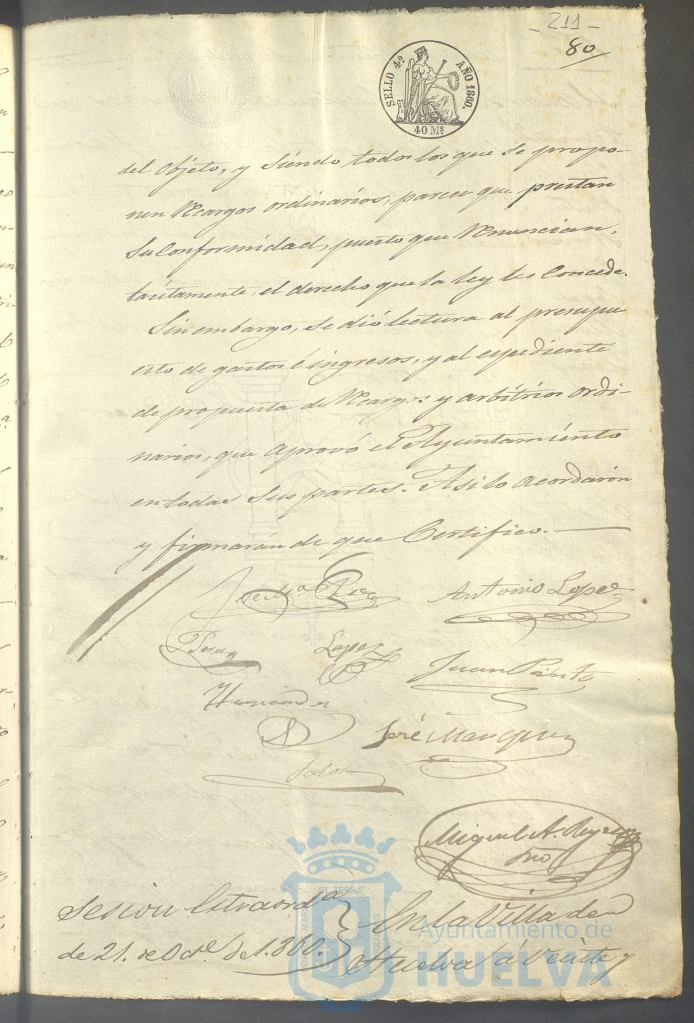 - 211 -
80
SELLO 4º AÑO 1860.
40 Ms
del objeto, y siendo todos los que se propo-
nen Recargos ordinarios, parece que prestan
su Conformidad, puesto que Renuncian,
tacitamente el derecho que la ley les Concede.
Sin embargo, se dió lectura al presupu-
esto de gastos é ingresos, y al espediente
de propuesta de Recargos y arbitrios ordi-
narios, que aprovó el Ayuntamiento
en todas sus partes. Asi lo acordaron
y firmarán de que Certifico.
Antonio Lopez
Lopez
Juan Pinto
Hernandez
José Marquez
Miguel A. Reyes
Srio
Sesion Extraorda
de 21. de Oce. de 1.860.
En la Villa de
Huelva á Veinte y
Ayuntamiento de
HUELVA